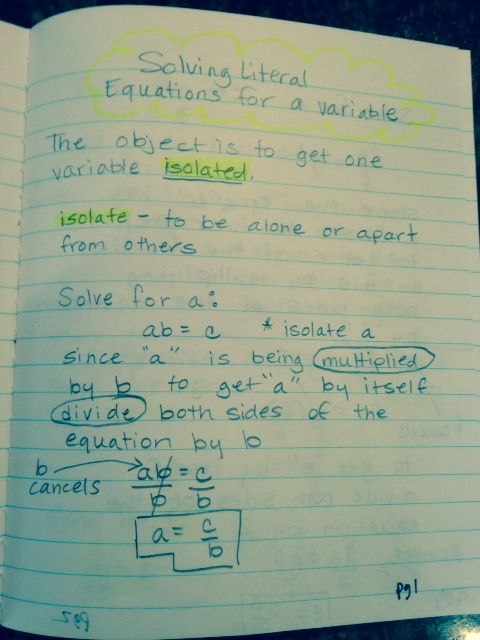 Solving Literal
Equations for a variable
The object is to get one
variable isolated.
isolate - to be alone or apart
from others
Solve for a:
ab = c * isolate a
since "a" is being multiplied
by b to get "a" by itself
divide both sides of the
equation by b
b cancels → ab/b = c/b
a = c/b
pg1